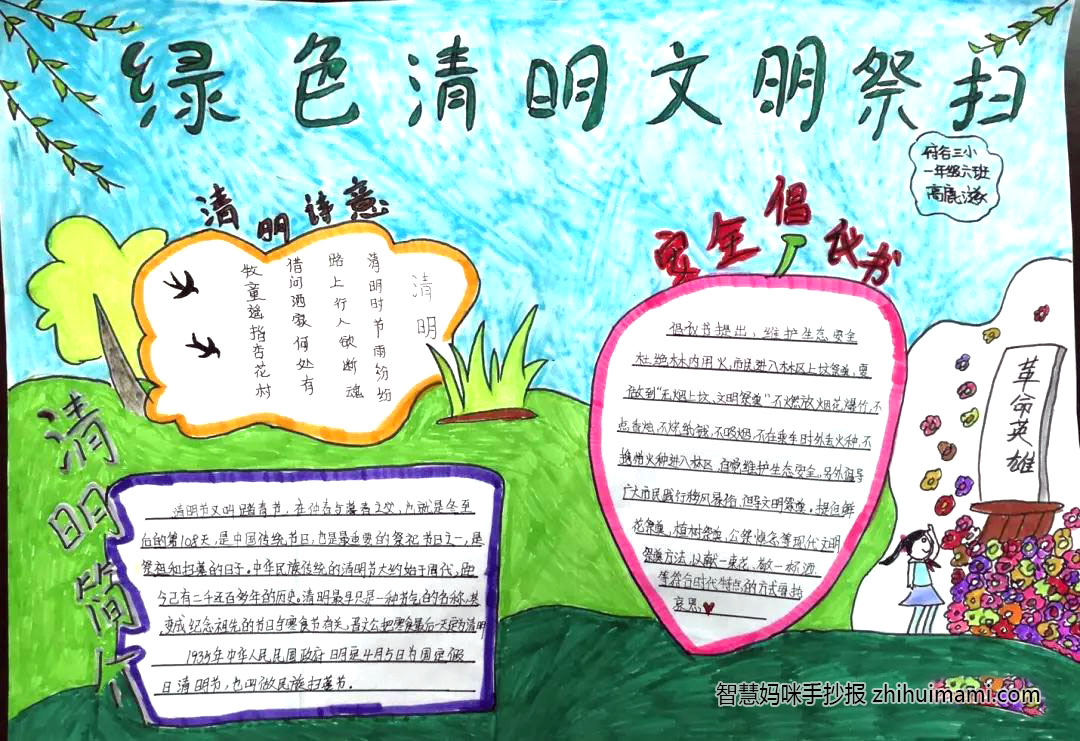 绿色清明文明祭扫
府谷三小
一年级六班
清明诗意
清明
清明时节雨纷纷
路上行人欲断魂
借问酒家何处有
牧童遥指杏花村
安全倡议书
倡议书提出，维护生态安全
杜绝林内用火，市民进入林区上坟祭奠，要
做到“无烟上坟、文明祭奠”不燃放烟花爆竹，不
点香烛，不烧纸钱，不吸烟，不在乘车时外丢火种，不
携带火种进入林区，自觉维护生态安全。另外倡导
广大市民践行移风易俗，倡导文明祭奠。提倡鲜
花祭奠，植树祭奠，公祭悼念等现代文明
祭奠方法，以献一束花、敬一杯酒
等符合时代特点的方式寄托
哀思
革命英雄
清明简介
清明节又叫踏青节，在仲春与暮春之交，也就是冬至
后的第108天，是中国传统节日，也是最重要的祭祀节日之一，是
祭祖和扫墓的日子。中华民族传统的清明节大约始于周代，距
今已有二千五百多年的历史。清明最早只是一种节气的名称，其
变成纪念祖先的节日与寒食节有关，晋文公把寒食最后一天定为清明
1935年中华人民民国政府明定4月5日为国定假
日清明节，也叫做民族扫墓节。
智慧妈咪手抄报 zhihuimami.com